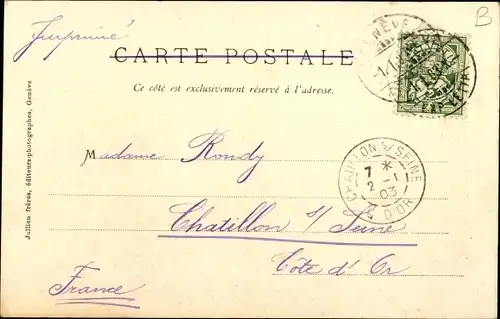 Imprimé
B
CARTE POSTALE
Ce côté est exclusivement réservé à l'adresse.
Madame Rondy
Chatillon s/ Seine
Côte d'Or
France
CHATILLON S/ SEINE
7 *
2 - 1
03
CÔTE D'OR
GENÈVE
Jullien frères, éditeurs-photographes, Genève